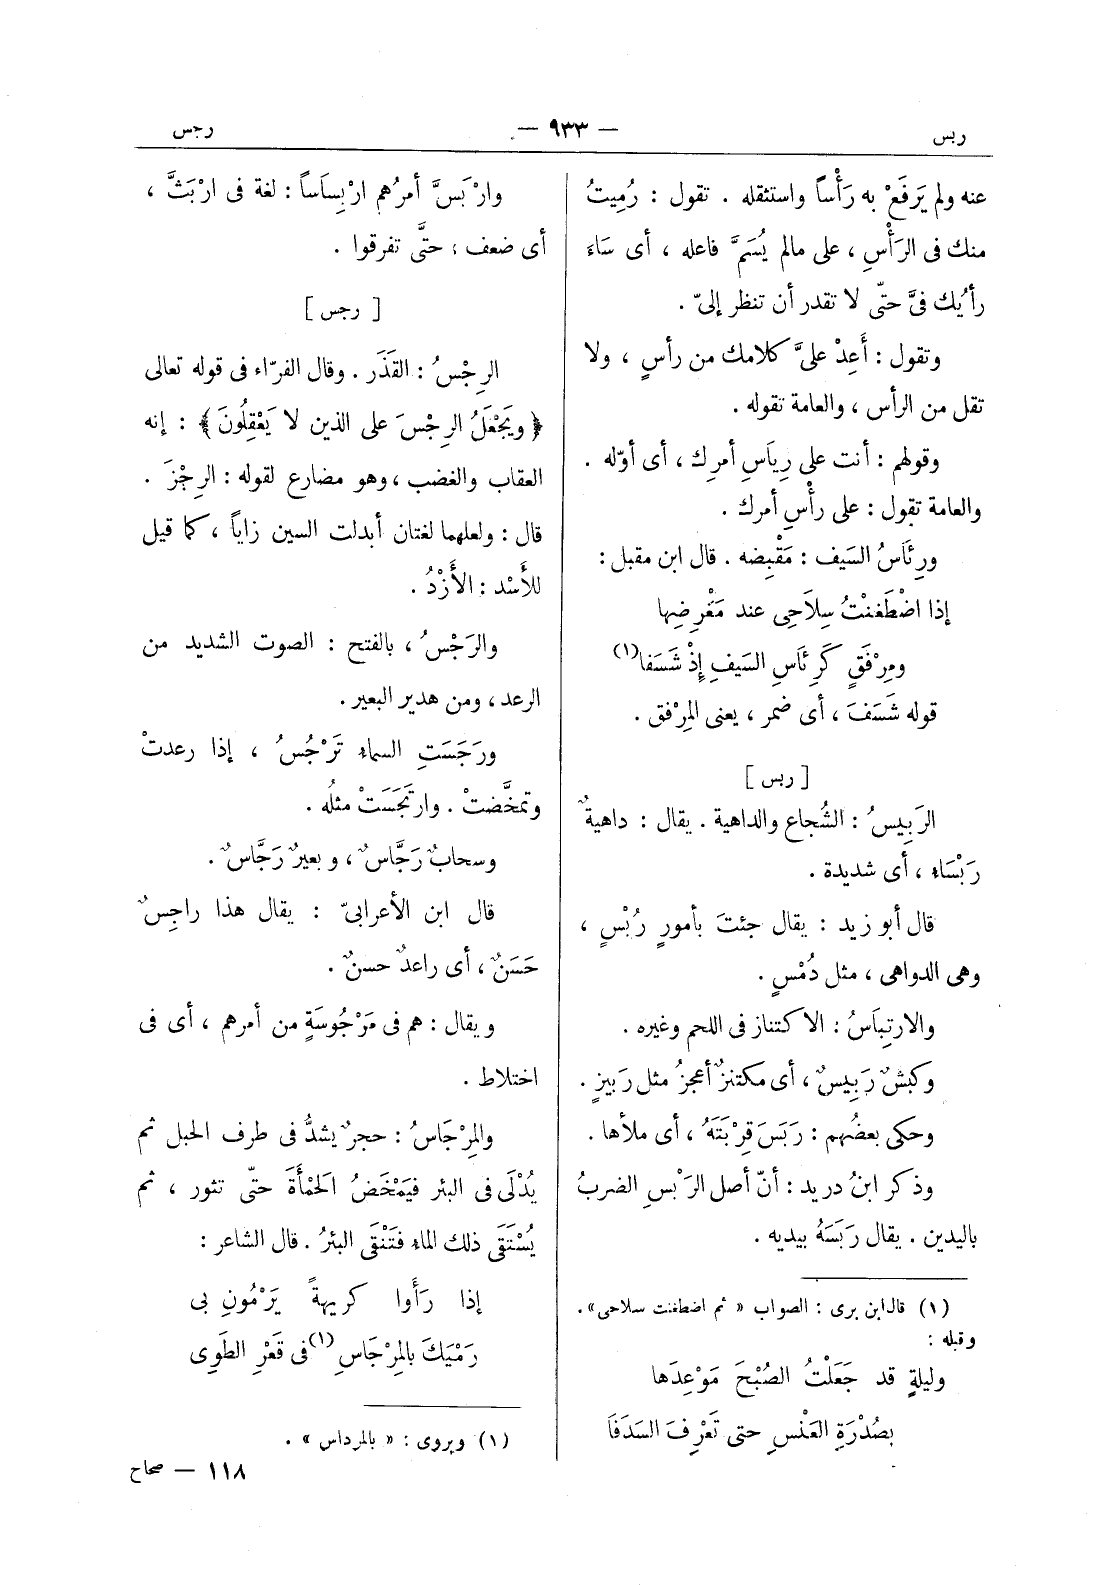 ربس
— ٩٣٣ —
رجس
عنه ولم يَرفَعْ به رَأْساً واستثقله . تقول : رُمِيتُ
منك فى الرَأْسِ ، على مالم يُسَمَّ فاعله ، أى سَاءَ
رأيُك فىَّ حتّى لا تقدر أن تنظر إلىّ .
وتقول : أَعِدْ علىَّ كلامك من رأسٍ ، ولا
تقل من الرأس ، والعامة تقوله .
وقولهم : أنت على رِيَاسِ أمرِك ، أى أوّله .
والعامة تقول : على رأْسِ أمرك .
ورِئَاسُ السَيف : مَقْبِضه . قال ابن مقبل :
إذا اضْطَغنْتُ سِلَاحِى عند مَغْرِضِها
ومِرْفَقٍ كَرِئَاسِ السَيفِ إذْ شَسَفا(١)
قوله شَسَفَ ، أى ضمر ، يعنى المِرْفق .
[ ربس ]
الرَبِيسُ : الشُجاع والداهية . يقال : داهيةٌ
رَبْسَاء ، أى شديدة .
قال أبو زيد : يقال جئتَ بأمورٍ رُبْسٍ ،
وهى الدواهى ، مثل دُمْسٍ .
والارتِبَاسُ : الاكتناز فى اللحم وغيره .
وكبشٌ رَبِيسٌ ، أى مكتنزٌ أعجزُ مثل رَبيزٍ .
وحكى بعضُهم : رَبَسَ قِرْبَتَهُ ، أى ملأها .
وذكر ابنُ دريد : أنّ أصل الرَبْسِ الضربُ
باليدين . يقال رَبَسَهُ بيديه .
(١) قال ابن برى : الصواب « ثم اضطغنت سلاحى » .
وقبله :
وليلةٍ قد جَعَلْتُ الصُبْحَ مَوْعِدَها
بصُدْرَةِ العَنْسِ حتى تَعْرِفَ السَدَفَا
وارْبَسَّ أمرُهم ارْبِسَاساً : لغة فى ارْبَثَّ ،
أى ضعف ؛ حتَّى تفرقوا .
[ رجس ]
الرِجْسُ : القَذَر . وقال الفرّاء فى قوله تعالى
﴿ ويَجْعَلُ الرِجْسَ على الذين لا يَعْقِلُونَ ﴾ : إنه
العقاب والغضب ، وهو مضارع لقوله : الرِجْزَ .
قال : ولعلهما لغتان أبدلت السين زاياً ، كما قيل
للأَسْد : الأَزْدُ .
والرَجْسُ ، بالفتح : الصوت الشديد من
الرعد ، ومن هدير البعير .
ورَجَسَتِ السماء تَرْجُسُ ، إذا رعدتْ
وتمخَّضتْ . وارتَجَسَتْ مثلُه .
وسحابٌ رَجَّاسٌ ، وبعيرٌ رَجَّاسٌ .
قال ابن الأعرابىّ : يقال هذا راجِسٌ
حَسَنٌ ، أى راعدٌ حسنٌ .
ويقال : هم فى مَرْجُوسَةٍ من أمرهم ، أى فى
اختلاط .
والمِرْجَاسُ : حجرٌ يشدُّ فى طرف الحبل ثم
يُدْلَى فى البئر فيَمْخَضُ الحَمْأَةَ حتّى تثور ، ثم
يُسْتَقَى ذلك الماء فتَنْقَى البئرُ . قال الشاعر :
إذا رَأَوا كريهةً يَرْمُونِ بى
رَمْيَكَ بالمِرْجَاسِ(١) فى قَعْرِ الطَوِى
(١) ويروى : « بالمرداس » .
١١٨ — صحاح